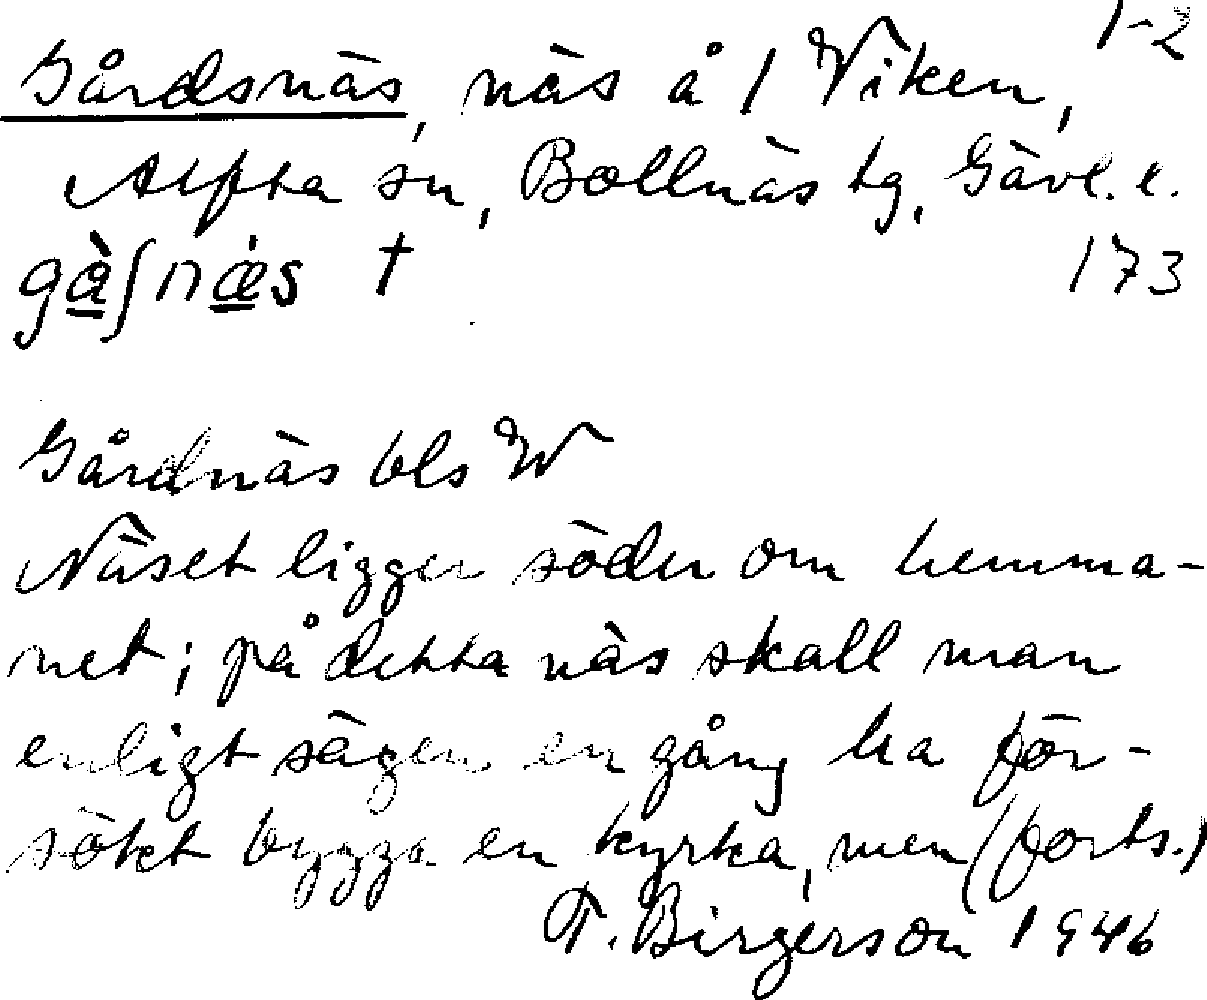 1-2
Gårdsnäs, näs å 1 Viken,
Alfta sn, Bollnäs tg, Gävl. l.
gå̀ʃnæ̀s † 173
Gårdnäs bls W
Näset ligger söder om hemma-
net; på detta näs skall man
enligt sägen en gång ha för-
sökt bygga en kyrka, men (forts.)
T. Birgerson 1946